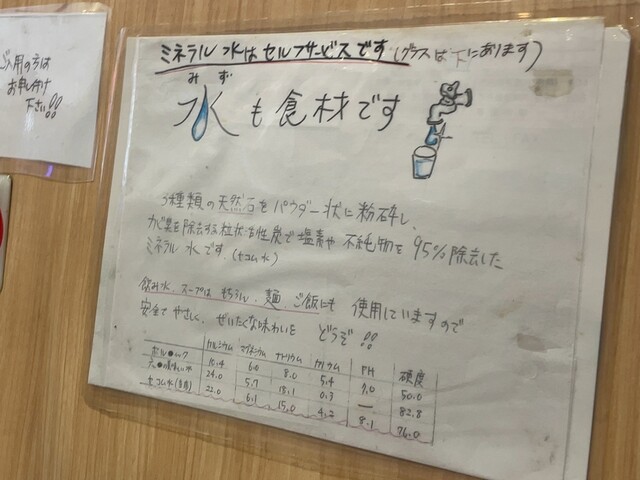 ご入用の方は
お申し付け
下さい!!
ミネラル水はセルフサービスです(グラスは下にあります)
みず
水も食材です
3種類の天然石をパウダー状に粉砕し、
カビ臭を除去する粒状活性炭で塩素や不純物を95%除去した
ミネラル水です。(セコム水)
飲み水、スープはもちろん、麺、ご飯にも使用していますので
安全でやさしく、ぜいたくな味わいをどうぞ!!
カルシウム マグネシウム ナトリウム カリウム PH 硬度
ボル●ック 10.4 6.0 8.0 5.4 7.0 50.0
六●の味わい水 24.0 5.7 18.1 0.3 — 82.8
セコム水 22.0 6.1 15.0 4.2 8.1 76.0